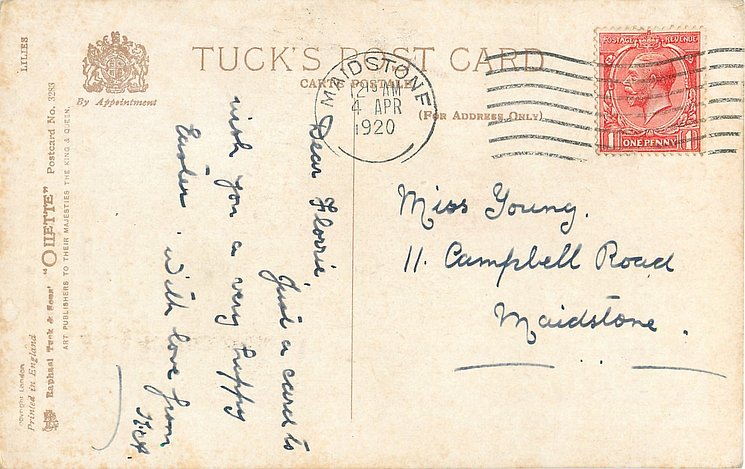 TUCK'S POST CARD
CARTE POSTALE
(FOR ADDRESS ONLY)
By Appointment
MAIDSTONE
12 15 AM
4 APR
1920
POSTAGE REVENUE
ONE PENNY
Dear Florrie,
Just a card to
wish you a very happy
Easter. with love from
Miss Young.
11. Campbell Road
Maidstone.
LILIES
"OILETTE" Postcard No. 3283
Raphael Tuck & Sons'
ART PUBLISHERS TO THEIR MAJESTIES THE KING & QUEEN.
Copyright London
Printed in England